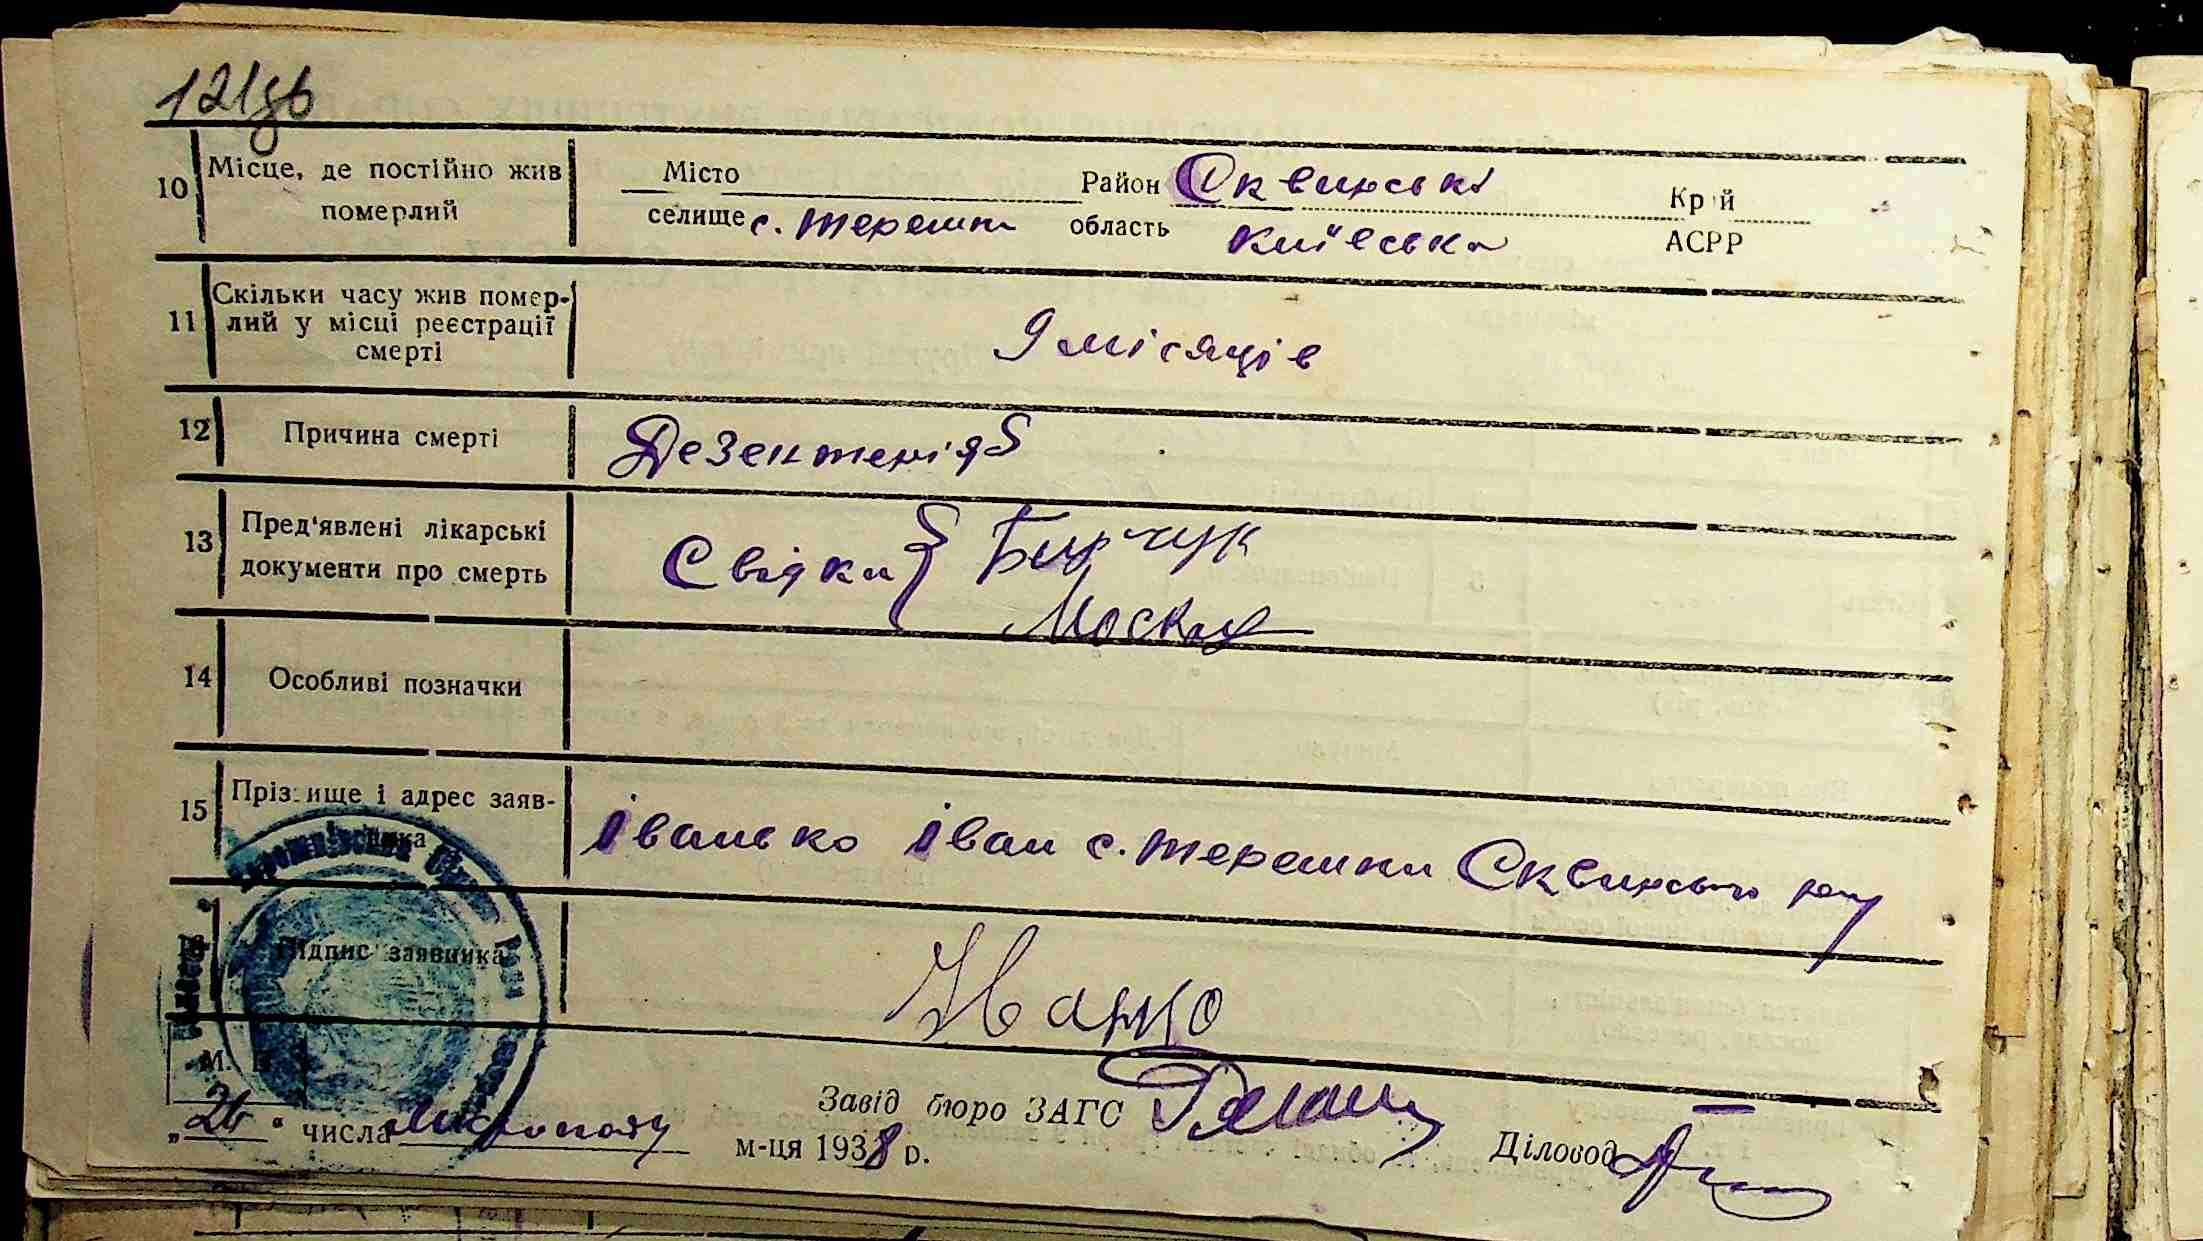 121зв
10 Місце, де постійно жив померлий
Місто Район Сквирські Край
селище с. терешки область київська АСРР
11 Скільки часу жив помер-
лий у місці реєстрації
смерті
9 місяців
12 Причина смерті
Дезентерія
13 Пред'явлені лікарські
документи про смерть
Свідки Бирчук
14 Особливі позначки
15 Прізвище і адрес заяв-
ника
іванько іван с. терешки Сквирсько р-ну
16 Підпис заявника
М. П.
„26" числа листопаду м-ця 1938 р.
Завід бюро ЗАГС
Діловод